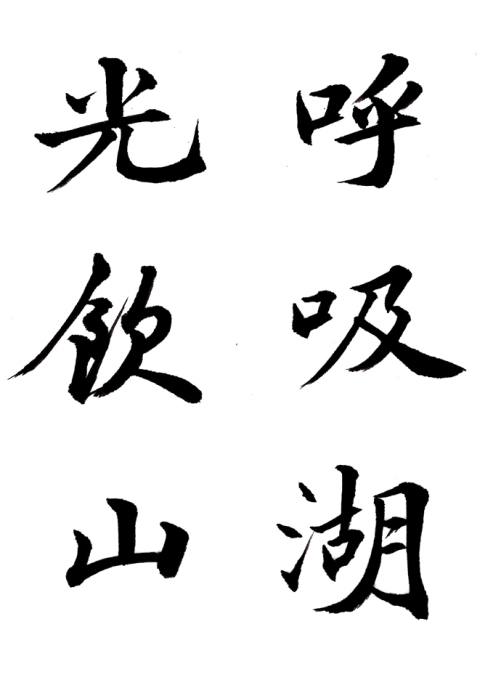 呼吸湖
光飲山